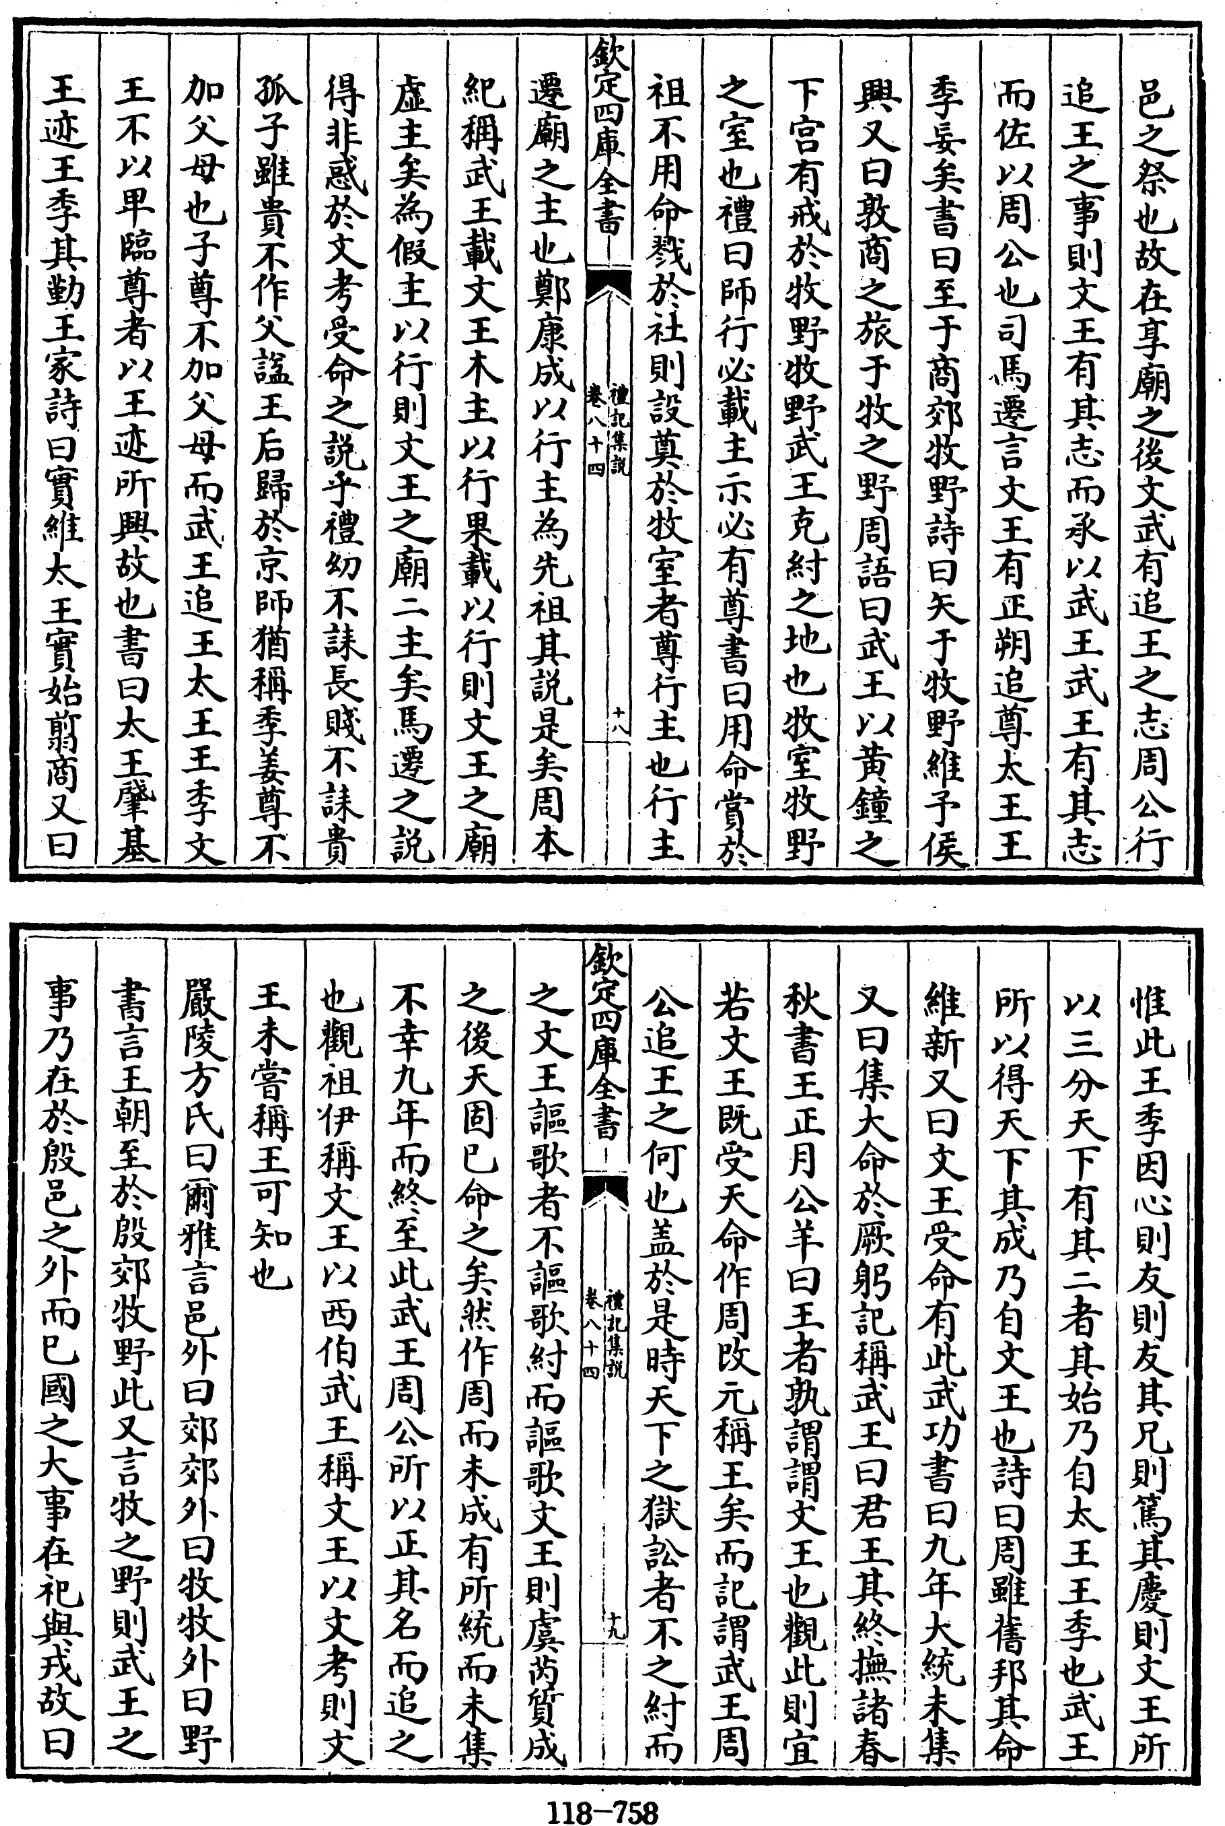 邑之祭也故在享廟之後文武有追王之志周公行
追王之事則文王有其志而承以武王武王有其志
而佐以周公也司馬遷言文王有正朔追尊太王王
季妄矣書曰至于商郊牧野詩曰矢于牧野維予侯
興又曰敦商之旅于牧之野周語曰武王以黄鐘之
下宫有戒於牧野牧野武王克紂之地也牧室牧野
之室也禮曰師行必載主示必有尊書曰用命賞於
祖不用命戮於社則設奠於牧室者尊行主也行主
欽定四庫全書
禮記集說
卷八十四
十八
遷廟之主也鄭康成以行主為先祖其説是矣周本
紀稱武王載文王木主以行果載以行則文王之廟
虚主矣為假主以行則文王之廟二主矣馬遷之説
得非惑於文考受命之説乎禮幼不誄長賤不誄貴
孤子雖貴不作父諡王后歸於京師猶稱季姜尊不
加父母也子尊不加父母而武王追王太王王季文
王不以卑臨尊者以王迹所興故也書曰太王肇基
王迹王季其勤王家詩曰實維太王實始翦商又曰
惟此王季因心則友則友其兄則篤其慶則文王所
以三分天下有其二者其始乃自太王王季也武王
所以得天下其成乃自文王也詩曰周雖舊邦其命
維新又曰文王受命有此武功書曰九年大統未集
又曰集大命於厥躬記稱武王曰君王其終撫諸春
秋書王正月公羊曰王者孰謂謂文王也觀此則宜
若文王既受天命作周改元稱王矣而記謂武王周
公追王之何也盖於是時天下之獄訟者不之紂而
欽定四庫全書
禮記集說
卷八十四
十九
之文王謳歌者不謳歌紂而謳歌文王則虞芮質成
之後天固已命之矣然作周而未成有所統而未集
不幸九年而終至此武王周公所以正其名而追之
也觀祖伊稱文王以西伯武王稱文王以文考則文
王未嘗稱王可知也
嚴陵方氏曰爾雅言邑外曰郊郊外曰牧牧外曰野
書言王朝至於殷郊牧野此又言牧之野則武王之
事乃在於殷邑之外而已國之大事在祀與戎故曰
118-758